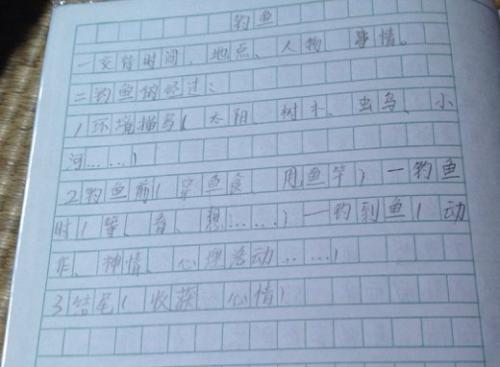 钓鱼
一交待时间、地点、人物、事情。
二钓鱼的经过:
1环境描写(太阳、树木、虫鸟、小
河……)
2钓鱼前(穿鱼食、甩鱼竿)一钓鱼
时(等、看、想……)一钓到鱼(动
作、神情、心理活动……)
3结尾(收获 心情)